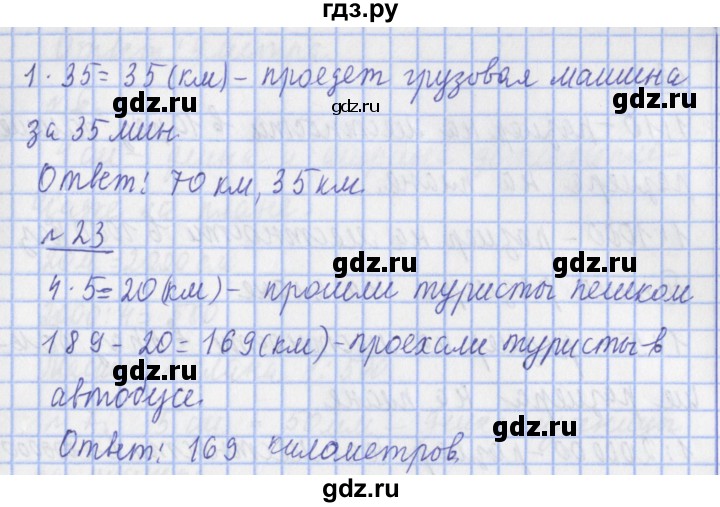 гдз.ру
1 · 35 = 35 (км) - проедет грузовая машина
gdz.ru gdz.ru
за 35 мин.
Ответ: 70 км, 35 км.
gdz.ru
№ 23
gdz.ru
4 · 5 = 20 (км) - прошли туристы пешком
gdz.ru
189 - 20 = 169 (км) - проехали туристы в
gdz.ru gdz.ru
автобусе.
Ответ: 169 километров.
gdz.ru
gdz.ru